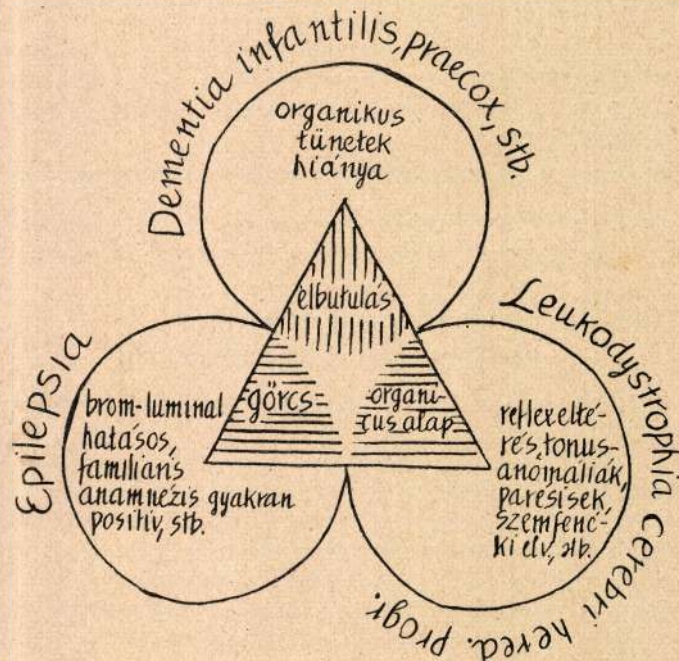 Dementia infantilis, praecox, stb.
organikus
tünetek
hiánya
elbutulás
Epilepsia
brom-luminal
hatásos,
familiaris
anamnézis gyakran
positiv, stb.
görcs
organi-
cus alap
Leukodystrophia cerebri hered. progr.
reflexelté-
rés, tonus-
anomáliák,
paresisek,
szemfené-
ki elv., stb.